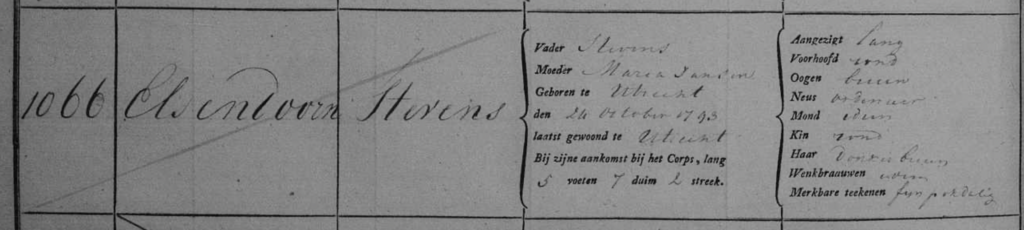 1066 Elsendoorn Stevens
Vader Stevens
Moeder Maria Jansen
Geboren te Utrecht
den 24 October 1793
laatst gewoond te Utrecht
Bij zijne aankomst bij het Corps, lang
5 voeten 7 duim 2 streek.
Aangezigt lang
Voorhoofd rond
Oogen bruin
Neus ordinair
Mond idem
Kin rond
Haar donkerbruin
Wenkbraauwen idem
Merkbare teekenen